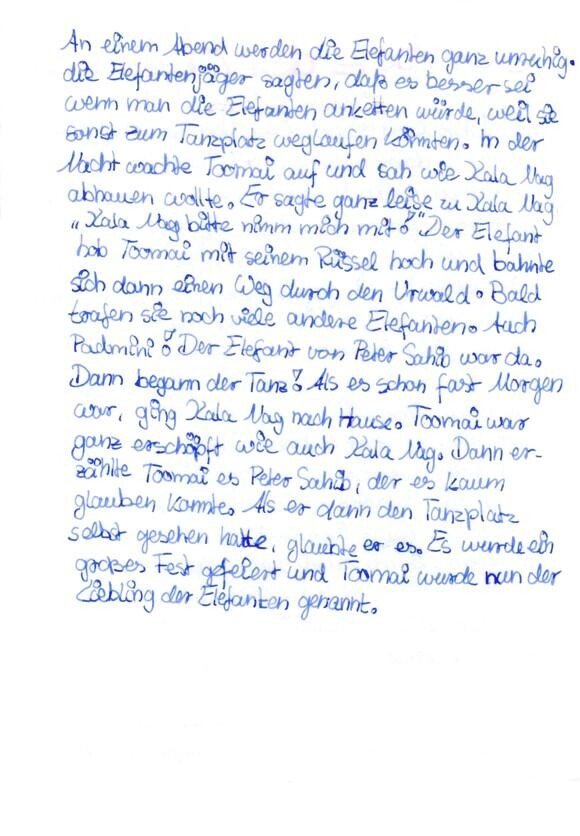 An einem Abend werden die Elefanten ganz unruhig.
die Elefantenjäger sagten, daß es besser sei
wenn man die Elefanten anketten würde, weil sie
sonst zum Tanzplatz weglaufen könnten. In der
Nacht wachte Toomai auf und sah wie Kala Nag
abhauen wollte. Er sagte ganz leise zu Kala Nag
„Kala Nag bitte nimm mich mit!" Der Elefant
hob Toomai mit seinem Rüssel hoch und bahnte
sich dann einen Weg durch den Urwald. Bald
trafen sie noch viele andere Elefanten. Auch
Padmini! Der Elefant von Peter Sahib war da.
Dann begann der Tanz! Als es schon fast Morgen
war, ging Kala Nag nach Hause. Toomai war
ganz erschöpft wie auch Kala Nag. Dann er-
zählte Toomai es Peter Sahib, der es kaum
glauben konnte. Als er dann den Tanzplatz
selbst gesehen hatte, glaubte er es. Es wurde ein
großes Fest gefeiert und Toomai wurde nun der
Liebling der Elefanten genannt.